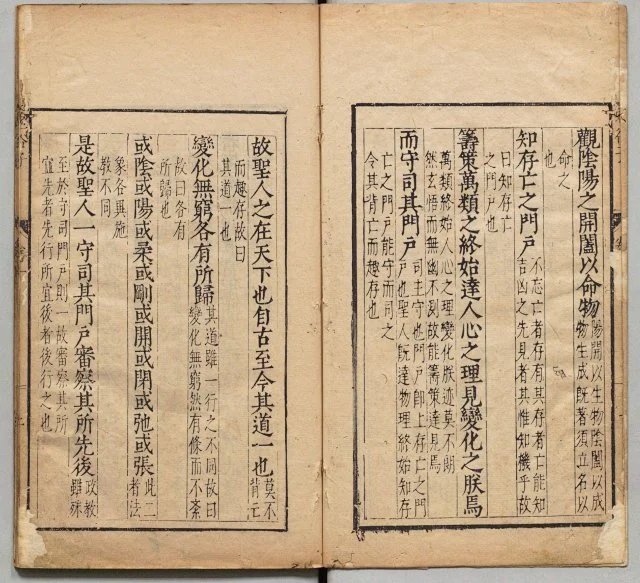 觀陰陽之開闔以命物
陽開以生物陰闔以成
物物生成既著須立名以
命之
也
知存亡之門戶
不忘亡者存有其存者亡能知
吉凶之先見者其惟知機乎故
曰知存亡
之門戶也
籌策萬類之終始達人心之理見變化之朕焉
萬類終始人心之理變化朕迹莫不朗
然玄悟而無幽不測故能籌策達見焉
而守司其門戶
司主守也門戶即上存亡之門
戶也聖人既達物理終始知存
亡之門戶能守而司之
令其背亡而趣存也
故聖人之在天下也自古至今其道一也
莫不
背亡
而趣存故曰
其道一也
變化無窮各有所歸
其道雖一行之不同故曰
變化無窮然有條而不紊
故曰各有
所歸也
或陰或陽或柔或剛或開或閉或弛或張
此二
者法
象各異施
教不同
是故聖人一守司其門戶審察其所先後
政教
雖殊
至於守司門戶則一故審察其所
宜先者先行所宜後者後行之也